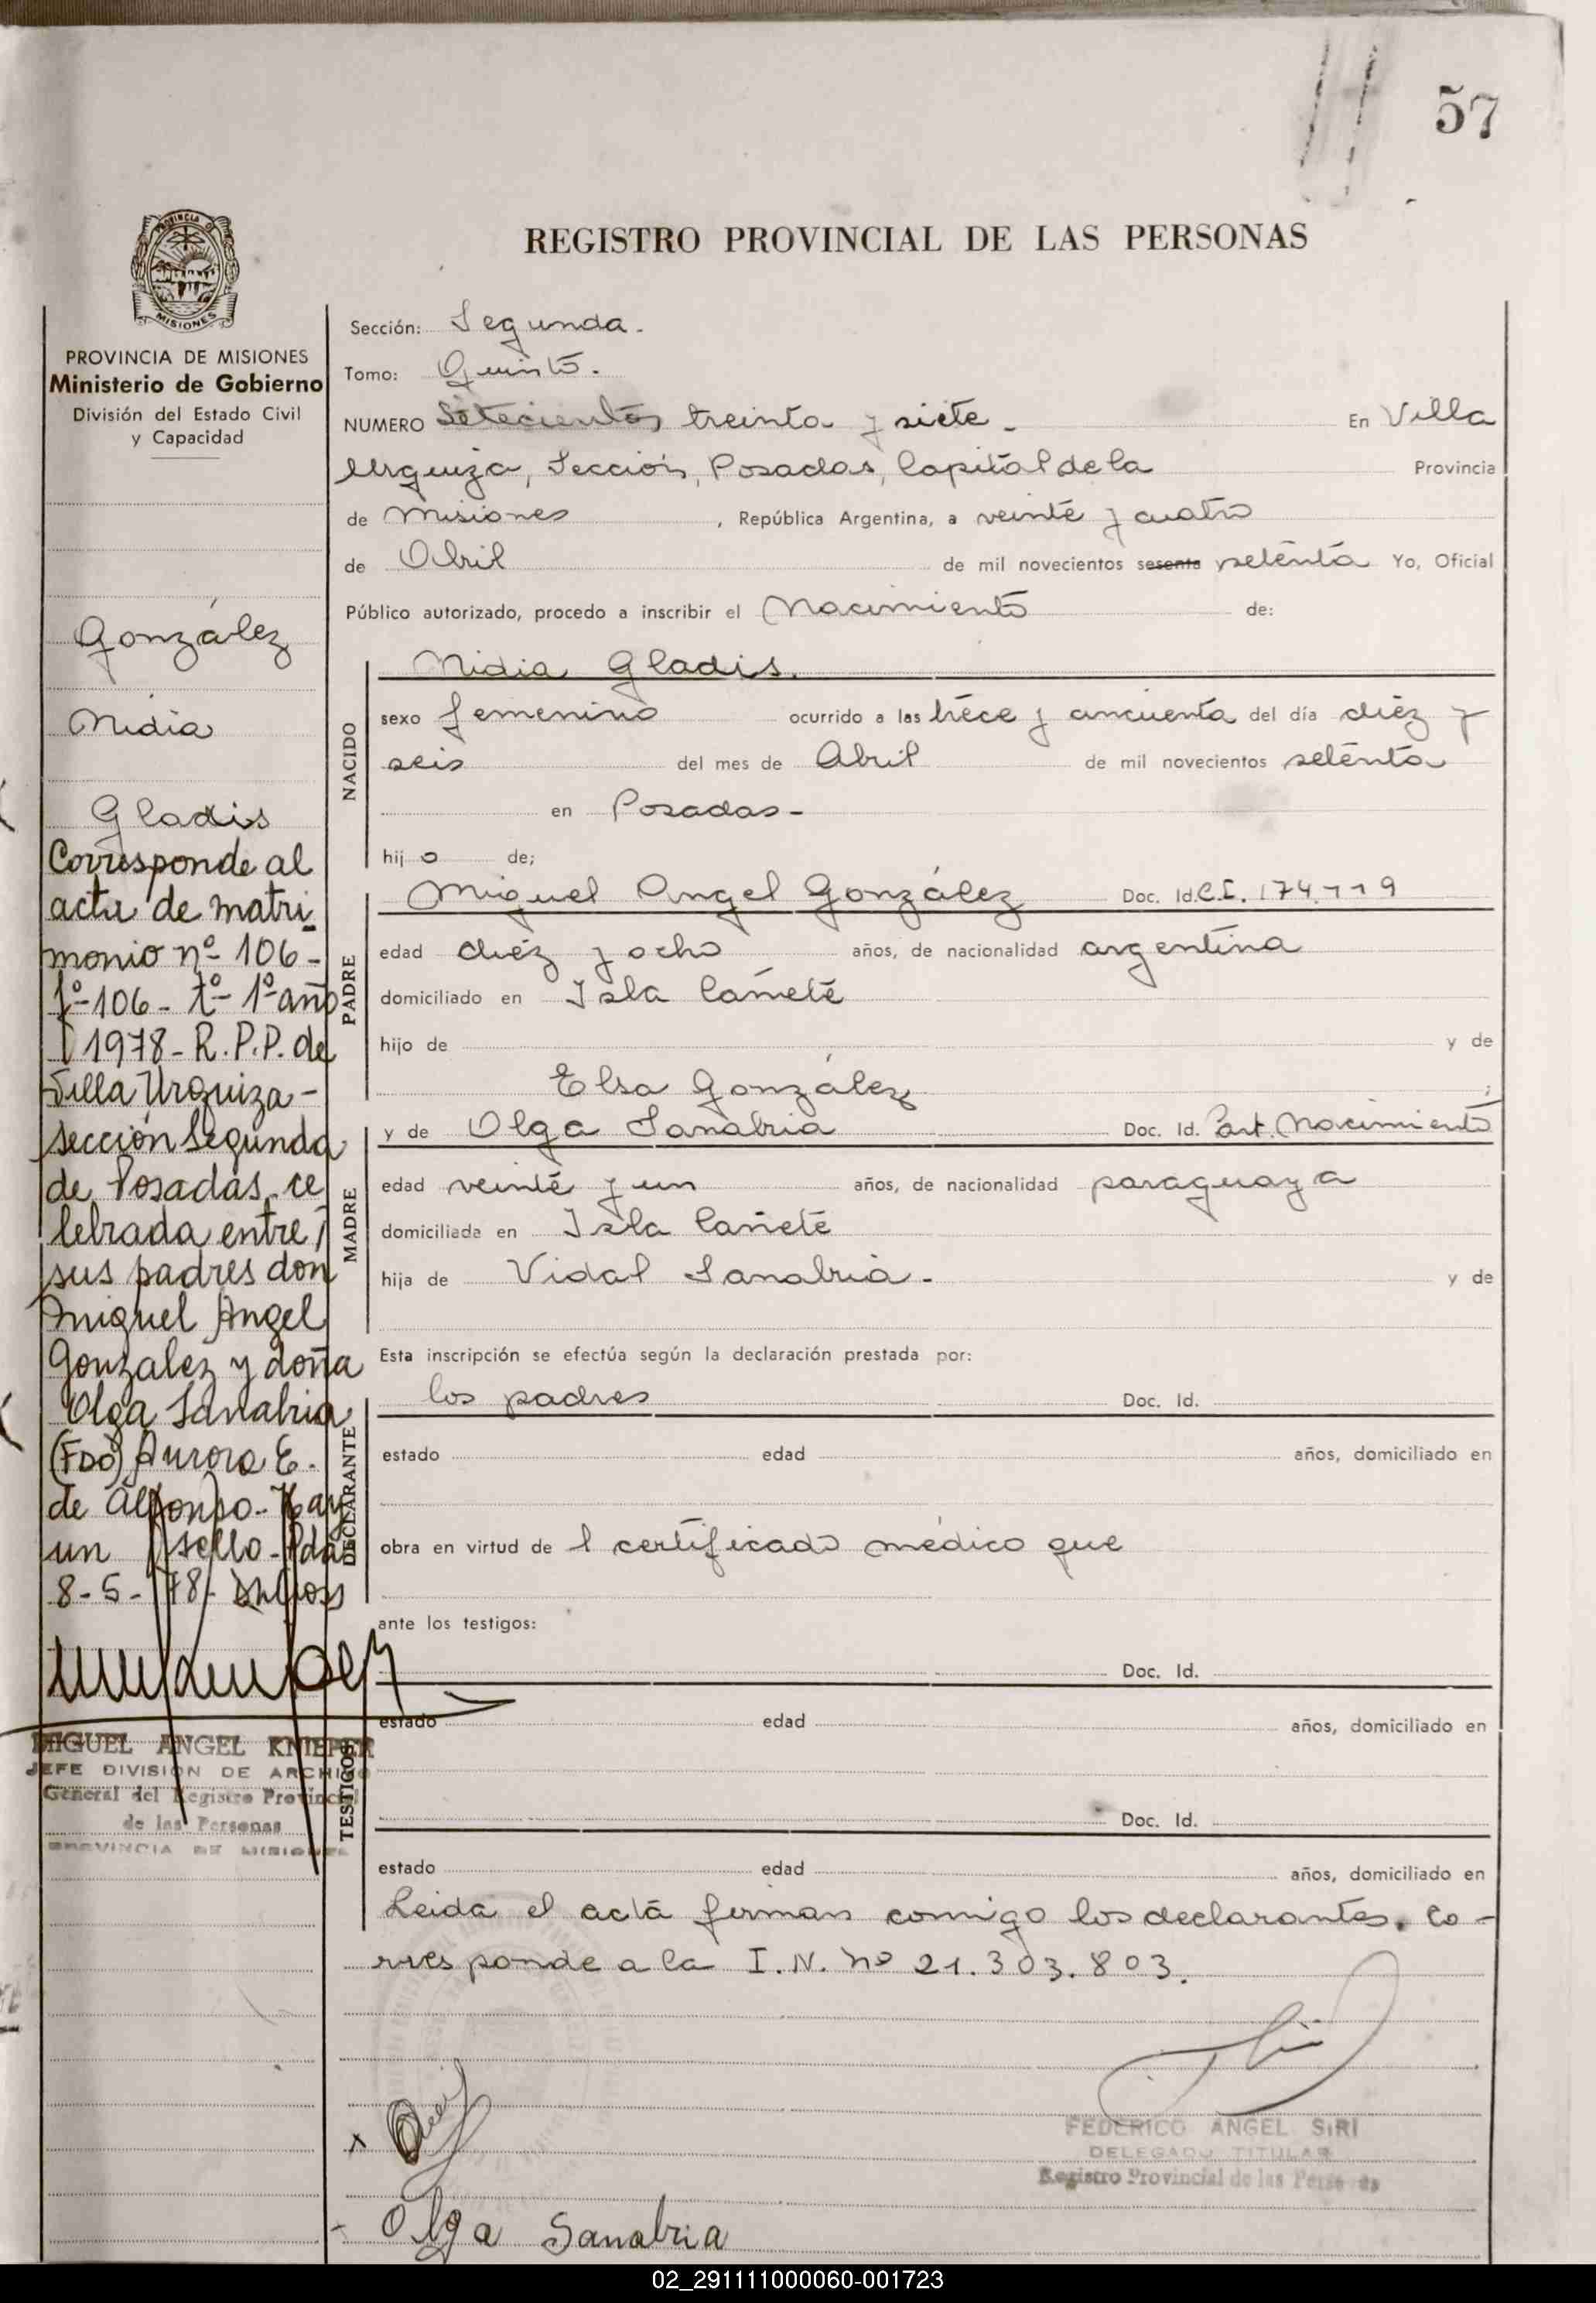 57
REGISTRO PROVINCIAL DE LAS PERSONAS
PROVINCIA DE MISIONES
Ministerio de Gobierno
División del Estado Civil
y Capacidad
González
Nidia
Gladis
Corresponde al
acta de matri
monio nº 106-
fº-106- tº- 1º año
1978- R.P.P. de
Villa Urquiza-
sección Segunda
de Posadas, ce
lebrada entre
sus padres don
Miguel Angel
Gonzalez y doña
Olga Sanabria
(FDO) Aurora E.
de Alfonso- Hay
un sello- Pdas
8-5-78-
MIGUEL ANGEL KNIEPER
JEFE DIVISION DE ARCHIVO
General del Registro Provincial
de las Personas
PROVINCIA DE MISIONES
Sección: Segunda.
Tomo: Quinto.
NUMERO Setecientos treinta y siete. En Villa
Urquiza, Sección, Posadas, Capital de la Provincia
de Misiones, República Argentina, a veinte y cuatro
de Abril de mil novecientos sesenta setenta Yo, Oficial
Público autorizado, procedo a inscribir el Nacimiento de:
NACIDO
Nidia Gladis.
sexo femenino ocurrido a las trece y cincuenta del día diez y
seis del mes de Abril de mil novecientos setenta
en Posadas-
hij o de;
PADRE
Miguel Angel González Doc. Id. C.I. 174.119
edad diez y ocho años, de nacionalidad argentina
domiciliado en Isla Cañete
hijo de y de
Elsa González;
MADRE
y de Olga Sanabria Doc. Id. Part. Nacimiento
edad veinte y un años, de nacionalidad paraguaya
domiciliada en Isla Cañete
hija de Vidal Sanabria- y de
Esta inscripción se efectúa según la declaración prestada por:
DECLARANTE
los padres Doc. Id.
estado edad años, domiciliado en
obra en virtud de l certificado médico que
ante los testigos:
TESTIGOS
Doc. Id.
estado edad años, domiciliado en
Doc. Id.
estado edad años, domiciliado en
Leida el acta firman conmigo los declarantes. Co-
rresponde a la I.N. nº 21.303.803.
FEDERICO ANGEL SIRI
DELEGADO TITULAR
Registro Provincial de las Personas
Olga Sanabria
02_291111000060-001723